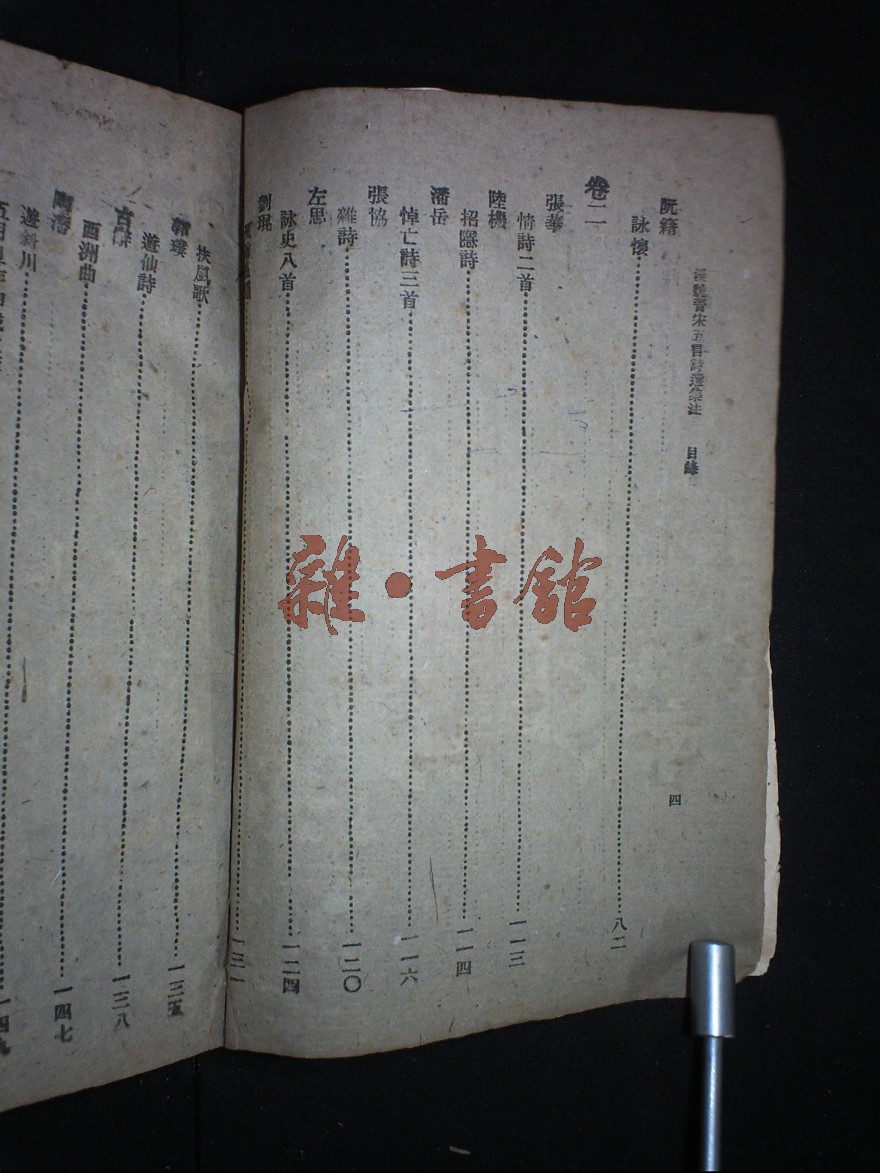 漢魏晉宋五言詩選集注　目錄
四
阮籍
詠懷……八二
卷二
張華
情詩二首……一一三
陸機
招隱詩……一一四
潘岳
悼亡詩三首……一一六
張協
雜詩……一二〇
左思
詠史八首……一二四
劉琨
一三一
扶風歌
郭璞
遊仙詩……一三五
古辭
西洲曲……一三八
陶潛
遊斜川……一四七
一四九
雜·書館